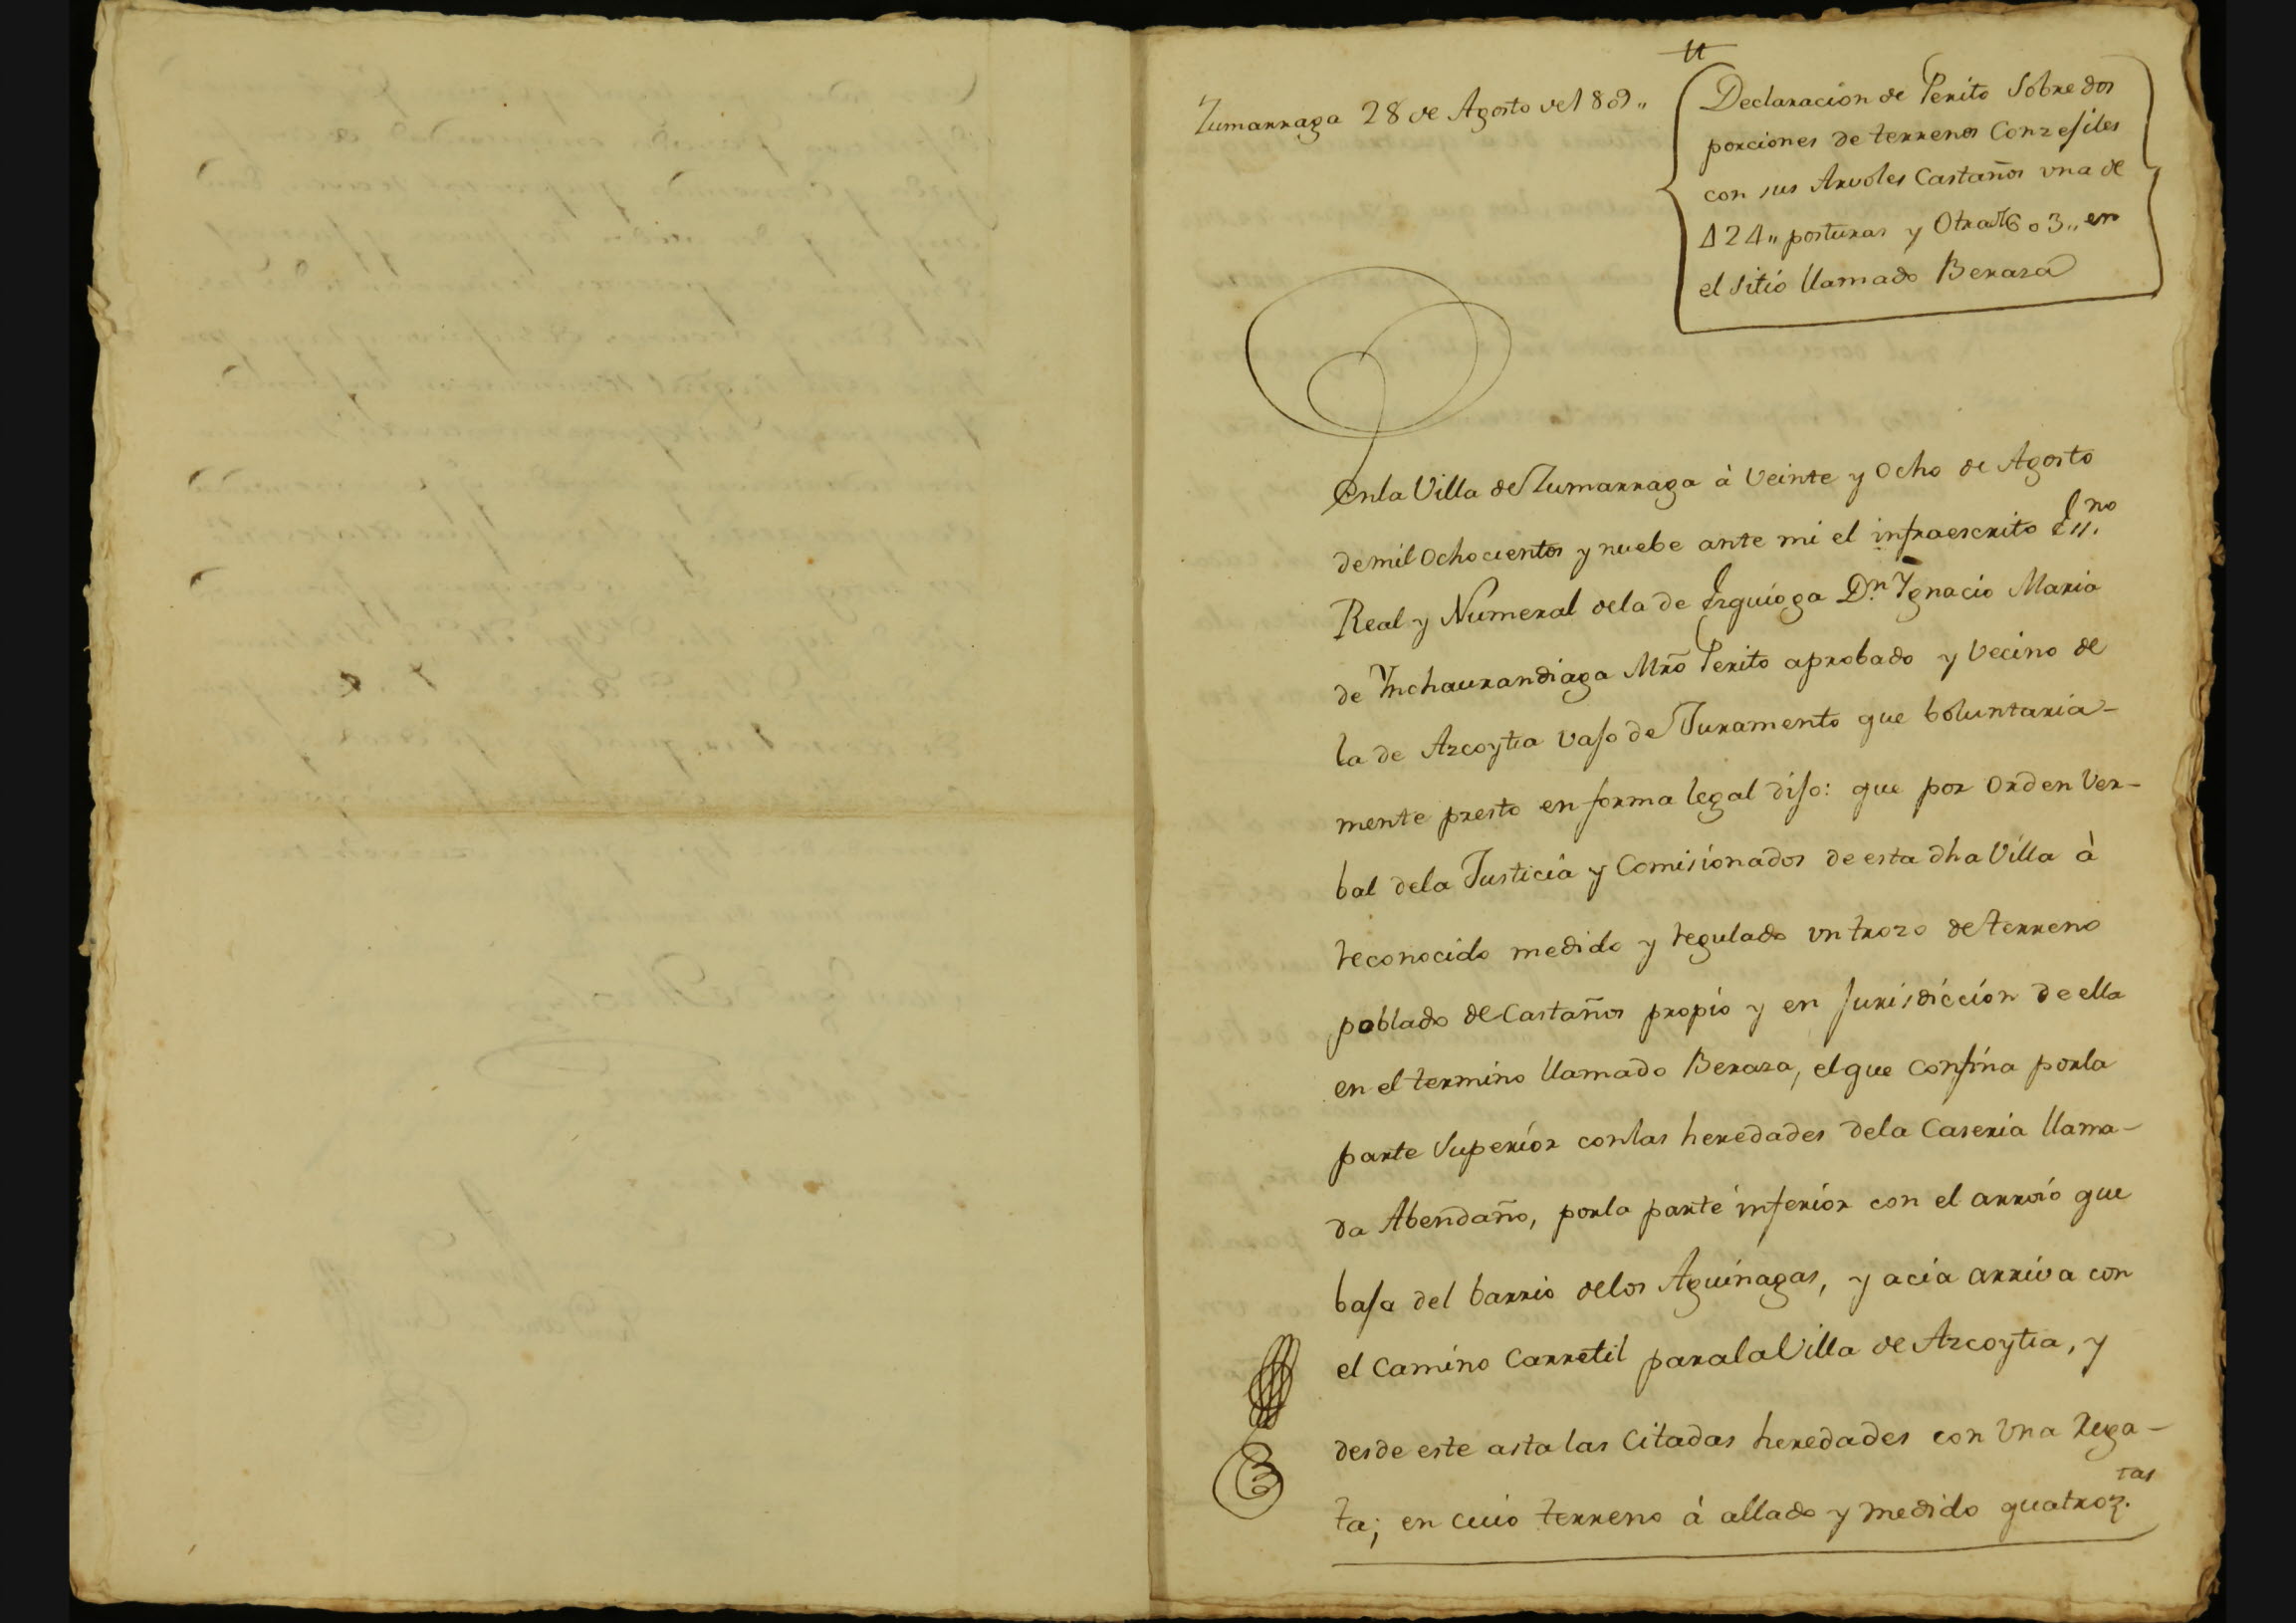 Zumarraga 28 de Agosto de 1809,,
Declaracion de Perito Sobre dos
porciones de terrenos Conzesiles
con sus Arvoles Castaños vna de
424,, posturas y Otra de 603,, en
el sitio llamado Beraza
En la Villa de Zumarraga à Veinte y Ocho de Agosto
de mil Ochocientos y nuebe ante mi el infraescrito Ess.no
Real y Numeral de la de Ezquioga D.n Ygnacio Maria
de Ynchaurandiaga Mrõ Perito aprobado y Vecino de
la de Azcoytia vajo de Juramento que boluntaria-
mente presto en forma legal dijo: que por Orden Ver-
bal de la Justicia y Comisionados de esta dha Villa à
reconocido medido y regulado vn trozo de terreno
poblado de Castaños propio y en Jurisdiccion de ella
en el termino llamado Beraza, el que confina por la
parte Superior con las heredades de la Caseria llama-
da Abendaño, por la parte inferior con el arroio que
baja del barrio de los Aguinagas, y acia arriva con
el Camino Carretil para la Villa de Azcoytia, y
desde este asta las Citadas heredades con vna Rega-
ta; en cuio terreno à allado y medido quatroz.tas